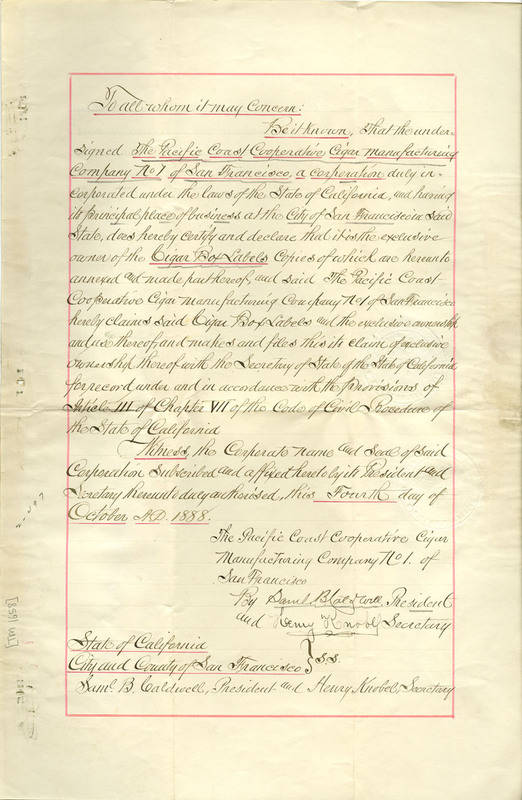 To all whom it may Concern:
Be it Known, That the under-
signed The Pacific Coast Cooperative Cigar Manufacturing
Company No 1 of San Francisco, a corporation duly in-
corporated under the laws of the State of California, and having
its principal place of business at the City of San Francisco in said
State, does hereby certify and declare that it is the exclusive
owner of the Cigar Box Labels Copies of which are hereunto
annexed and made part hereof, and said The Pacific Coast
Cooperative Cigar Manufacturing Company No 1 of San Francisco
hereby claims said Cigar Box Labels and the exclusive ownership
and use thereof and makes and files this its claim of exclusive
ownership thereof with the Secretary of State of the State of California
for record under and in accordance with the provisions of
Article III of Chapter VII of the Code of Civil Procedure of
the State of California
Witness, the Corporate name and Seal of said
Corporation Subscribed and affixed hereto by its President and
Secretary thereunto duly authorised, this Fourth day of
October A.D. 1888.
The Pacific Coast Cooperative Cigar
Manufacturing Company No 1. of
San Francisco
By Saml B Caldwell, President
and Henry Knobel Secretary
State of California
City and County of San Francisco } s.s.
Saml. B. Caldwell, President and Henry Knobel, Secretary
[TM 1658]